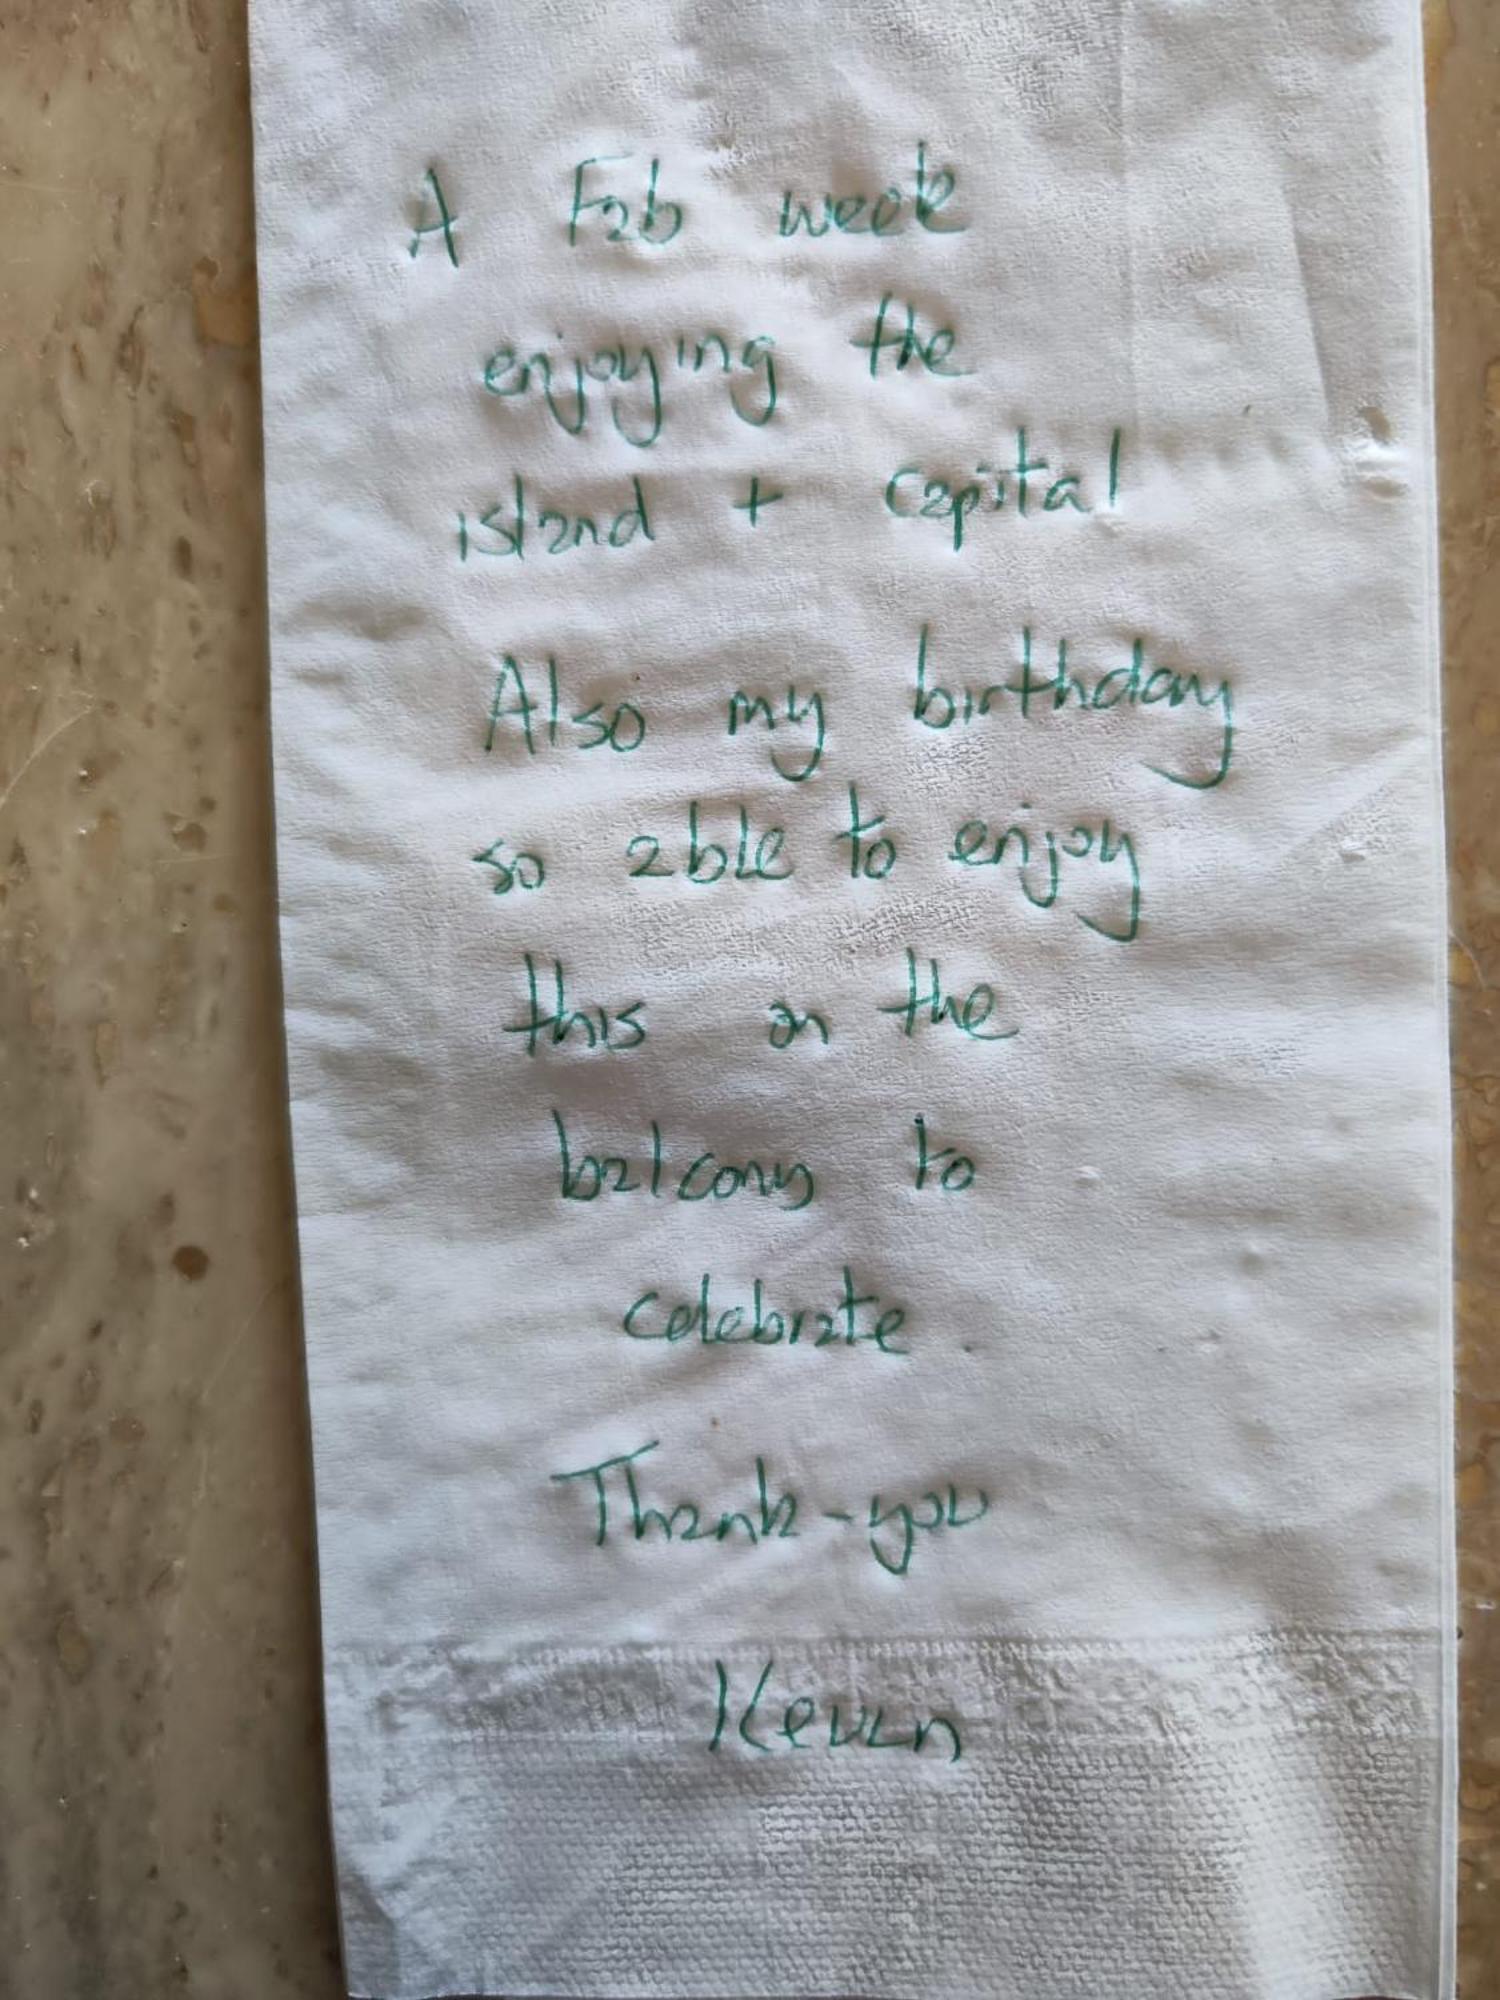 A Fab week
enjoying the
island + capital
Also my birthday
so able to enjoy
this on the
balcony to
celebrate.
Thank-you
Kevin